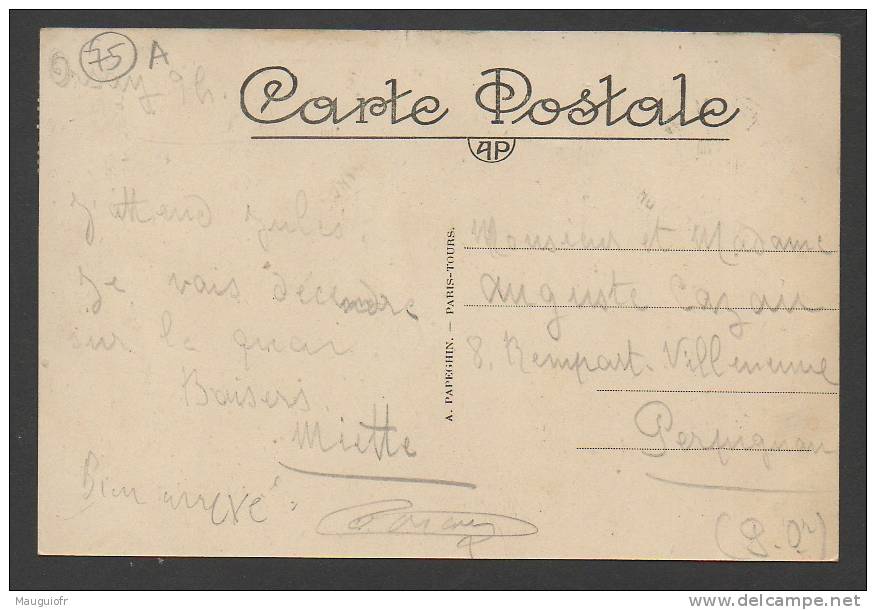 75 A
9h.
Carte Postale
AP
J'attend Jules.
Je vais décendre
sur le quai
Baisers
Miette
Bien arrivé.
A. PAPEGHIN. — PARIS-TOURS.
Monsieur et Madame
Auguste
8, Rempart-Villeneuve
Perpignan
(P. Or)
Mauguiofr
www.delcampe.net